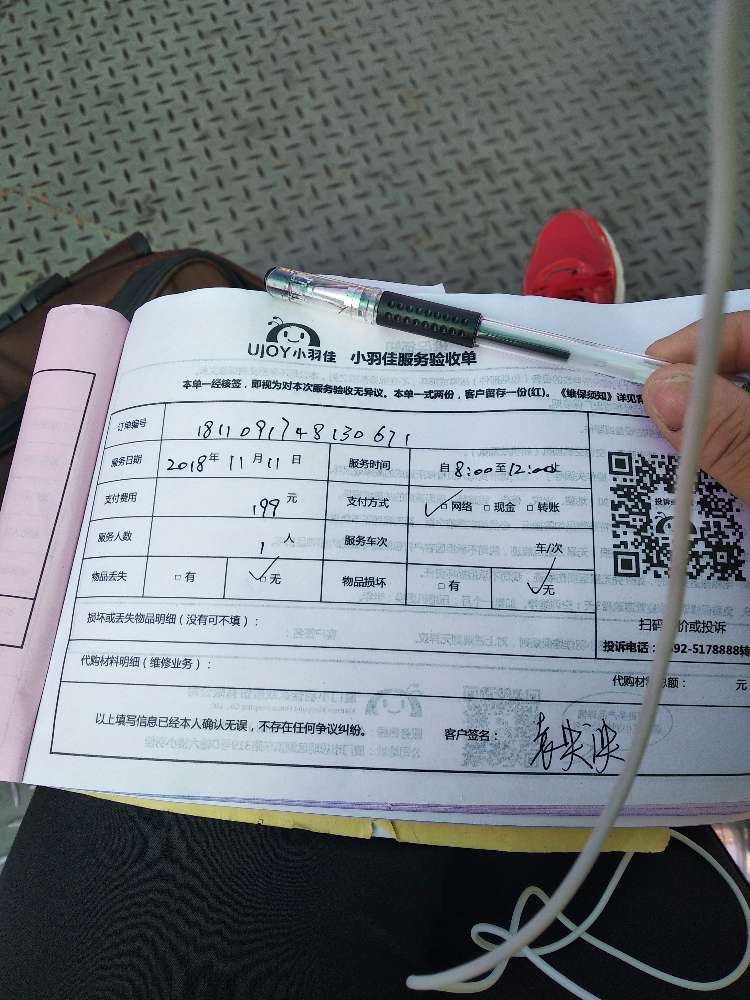 UJOY小羽佳 小羽佳服务验收单
本单一经核签，即视为对本次服务验收无异议。本单一式两份，客户留存一份(红)。《维保须知》详见背
订单编号 181109174813067 1
服务日期 2018年 11月 11日 服务时间 自8:00至12:00止
支付费用 199 元 支付方式 □网络 □现金 □转账
服务人数 1 人 服务车次 车/次
物品丢失 □有 □无 物品损坏 □有 □无
损坏或丢失物品明细（没有可不填）：
代购材料明细（维修业务）：
代购材 总额： 元
以上填写信息已经本人确认无误，不存在任何争议纠纷。 客户签名：
投诉
扫码 价或投诉
投诉电话： 92-5178888转